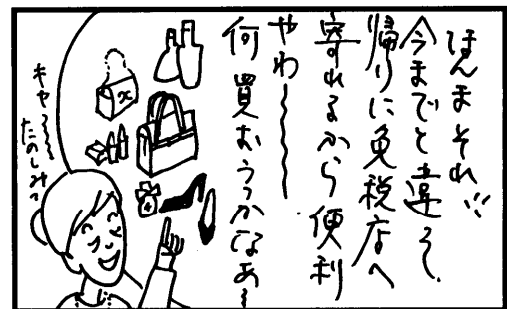 ほんまそれ!!
今までと違って、
帰りに免税店へ
寄れるから便利
やわ〜〜〜
何買おうかなあ〜
キャ〜〜
たのしみっ